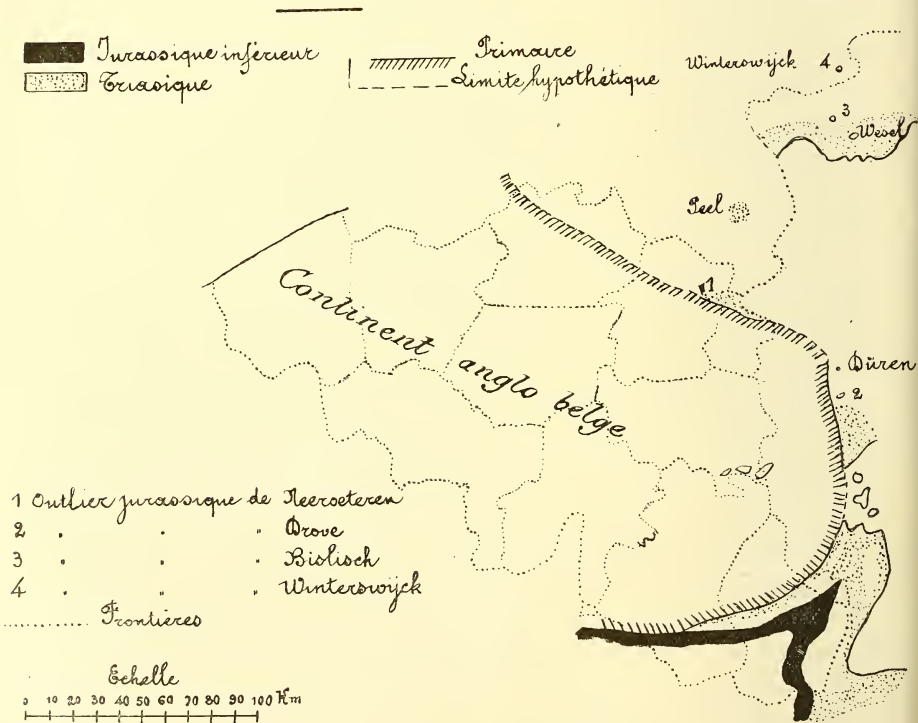 Jurassique inférieur
Triasique
Primaire
Limite hypothétique
Winterswijck 4
3
Wesel
Peel
1
Continent anglo belge
Düren
2
1 Outlier jurassique de Neeroeteren
2 " " " Drove
3 " " " Bislisch
4 " " " Winterswijck
Frontières
Echelle
0 10 20 30 40 50 60 70 80 90 100 Km